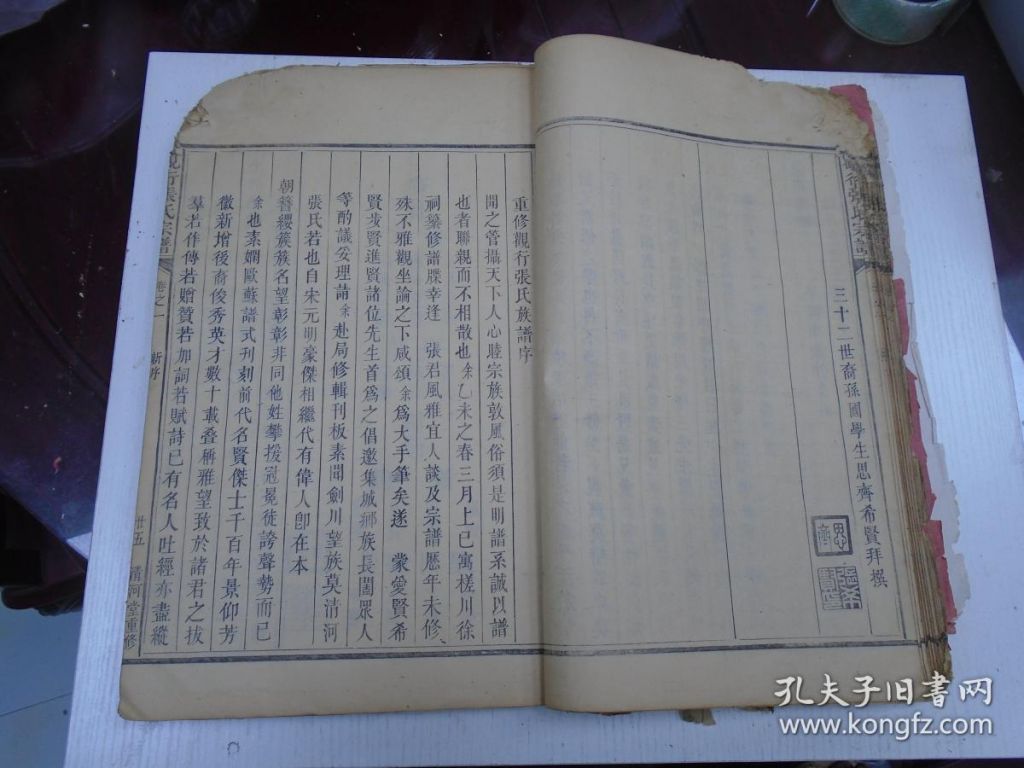 三十二世裔孫國學生思齊希賢拜撰
張氏宗譜
重修觀行張氏族譜序
聞之管攝天下人心睦宗族敦風俗須是明譜系誠以譜
也者聯親而不相散也余乙未之春三月上巳寓槎川徐
祠纂修譜牒幸逢 張君風雅宜人談及宗譜歷年未修、
殊不雅觀坐論之下咸頌余為大手筆矣遂 蒙愛賢希
賢步賢進賢諸位先生首為之倡邀集城鄉族長閤眾人
等酌議妥理請余赴局修輯刊板素聞劍川望族莫清河
張氏若也自宋元明豪傑相繼代有偉人卽在本
朝簪纓簇簇名望彰彰非同他姓攀援冠冕徒誇聲勢而已
余也素嫻歐蘇譜式刊刻前代名賢傑士千百年景仰芳
徽新增後裔俊秀英才數十載叠稱雅望致於諸君之拔
羣若作傳若贈贊若加詞若賦詩已有名人吐經亦盡縱
觀行張氏宗譜 卷之一 新序 廿五 清河堂重修
孔夫子旧书网
www.kongfz.com